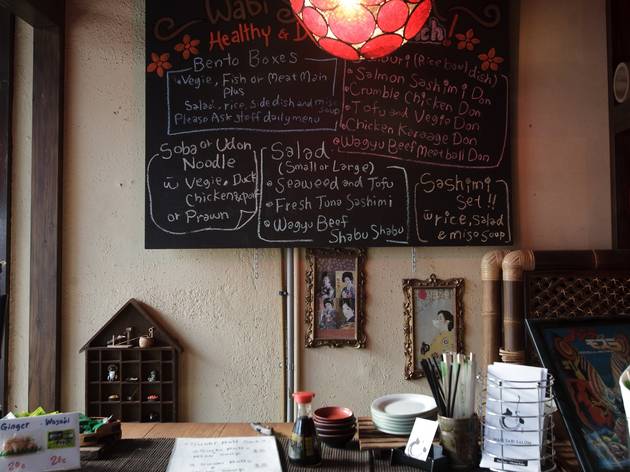 Wabi
Healthy & !
Bento Boxes
Vegie, Fish or Meat Main
plus
Salad, rice, side dish and miso soup
Please Ask staff daily menu
(Rice bowl dish)
Salmon Sashimi Don
Crumble Chicken Don
Tofu and Vegie Don
Chicken Karaage Don
Wagyu Beef Meatball Don
Soba or Udon
Noodle
w Vegie, Duck
Chicken &
or Prawn
Salad
(Small or Large)
Seaweed and Tofu
Fresh Tuna Sashimi
Wagyu Beef
Shabu Shabu
Sashimi
Set!!
w rice, salad
& miso soup
Ginger Wasabi
20c 20c
WABI SABI SALON